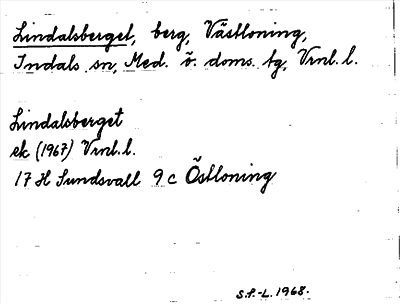 Lindalsberget, berg, Västloning,
Indals sn, Med. ö. doms. tg, Vrnl. l.
Lindalsberget
ek (1967) Vrnl. l.
17 H Sundsvall 9 c Östloning
S.F.-L. 1968.